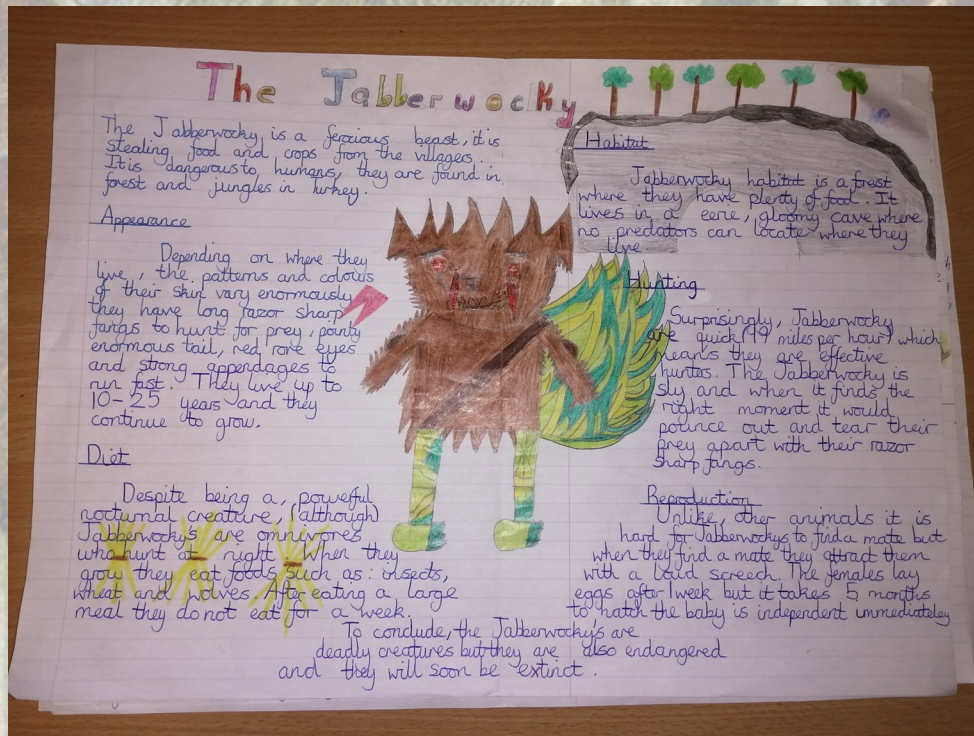 The Jabberwocky
The Jabberwocky, is a ferocious beast, it is
stealing food and crops from the villages.
It is dangerous to humans, they are found in
forest and jungles in turkey.
Appearance
Depending on where they
live, the patterns and colours
of their skin vary enormously
they have long razor sharp
fangs to hunt for prey, pointy
enormous tail, red rore eyes
and strong appendages to
run fast. They live up to
10-25 years and they
continue to grow.
Diet
Despite being a, powerful
nocturnal creature, (although)
Jabberwocky's are omnivores
who hunt at night. When they
grow they eat foods such as: insects,
wheat and wolves. After eating a large
meal they do not eat for a week.
Habitat
Jabberwocky habitat is a frest
where they have plenty of food. It
lives in a eerie, gloomy cave where
no predators can locate where they
live
Hunting
Surprisingly, Jabberwocky
are quick (99 miles per hour) which
means they are effective
hunters. The Jabberwocky is
sly and when it finds the
right moment it would
pounce out and tear their
prey apart with their razor
sharp fangs.
Reproduction
Unlike, other animals it is
hard for Jabberwockys to find a mate but
when they find a mate they attract them
with a loud screech. The females lay
eggs after 1 week but it takes 5 months
to hatch the baby is independent immediateley
To conclude, the Jabberwocky's are
deadly creatures but they are also endangered
and they will soon be extinct.